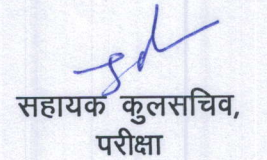 सहायक कुलसचिव,
परीक्षा